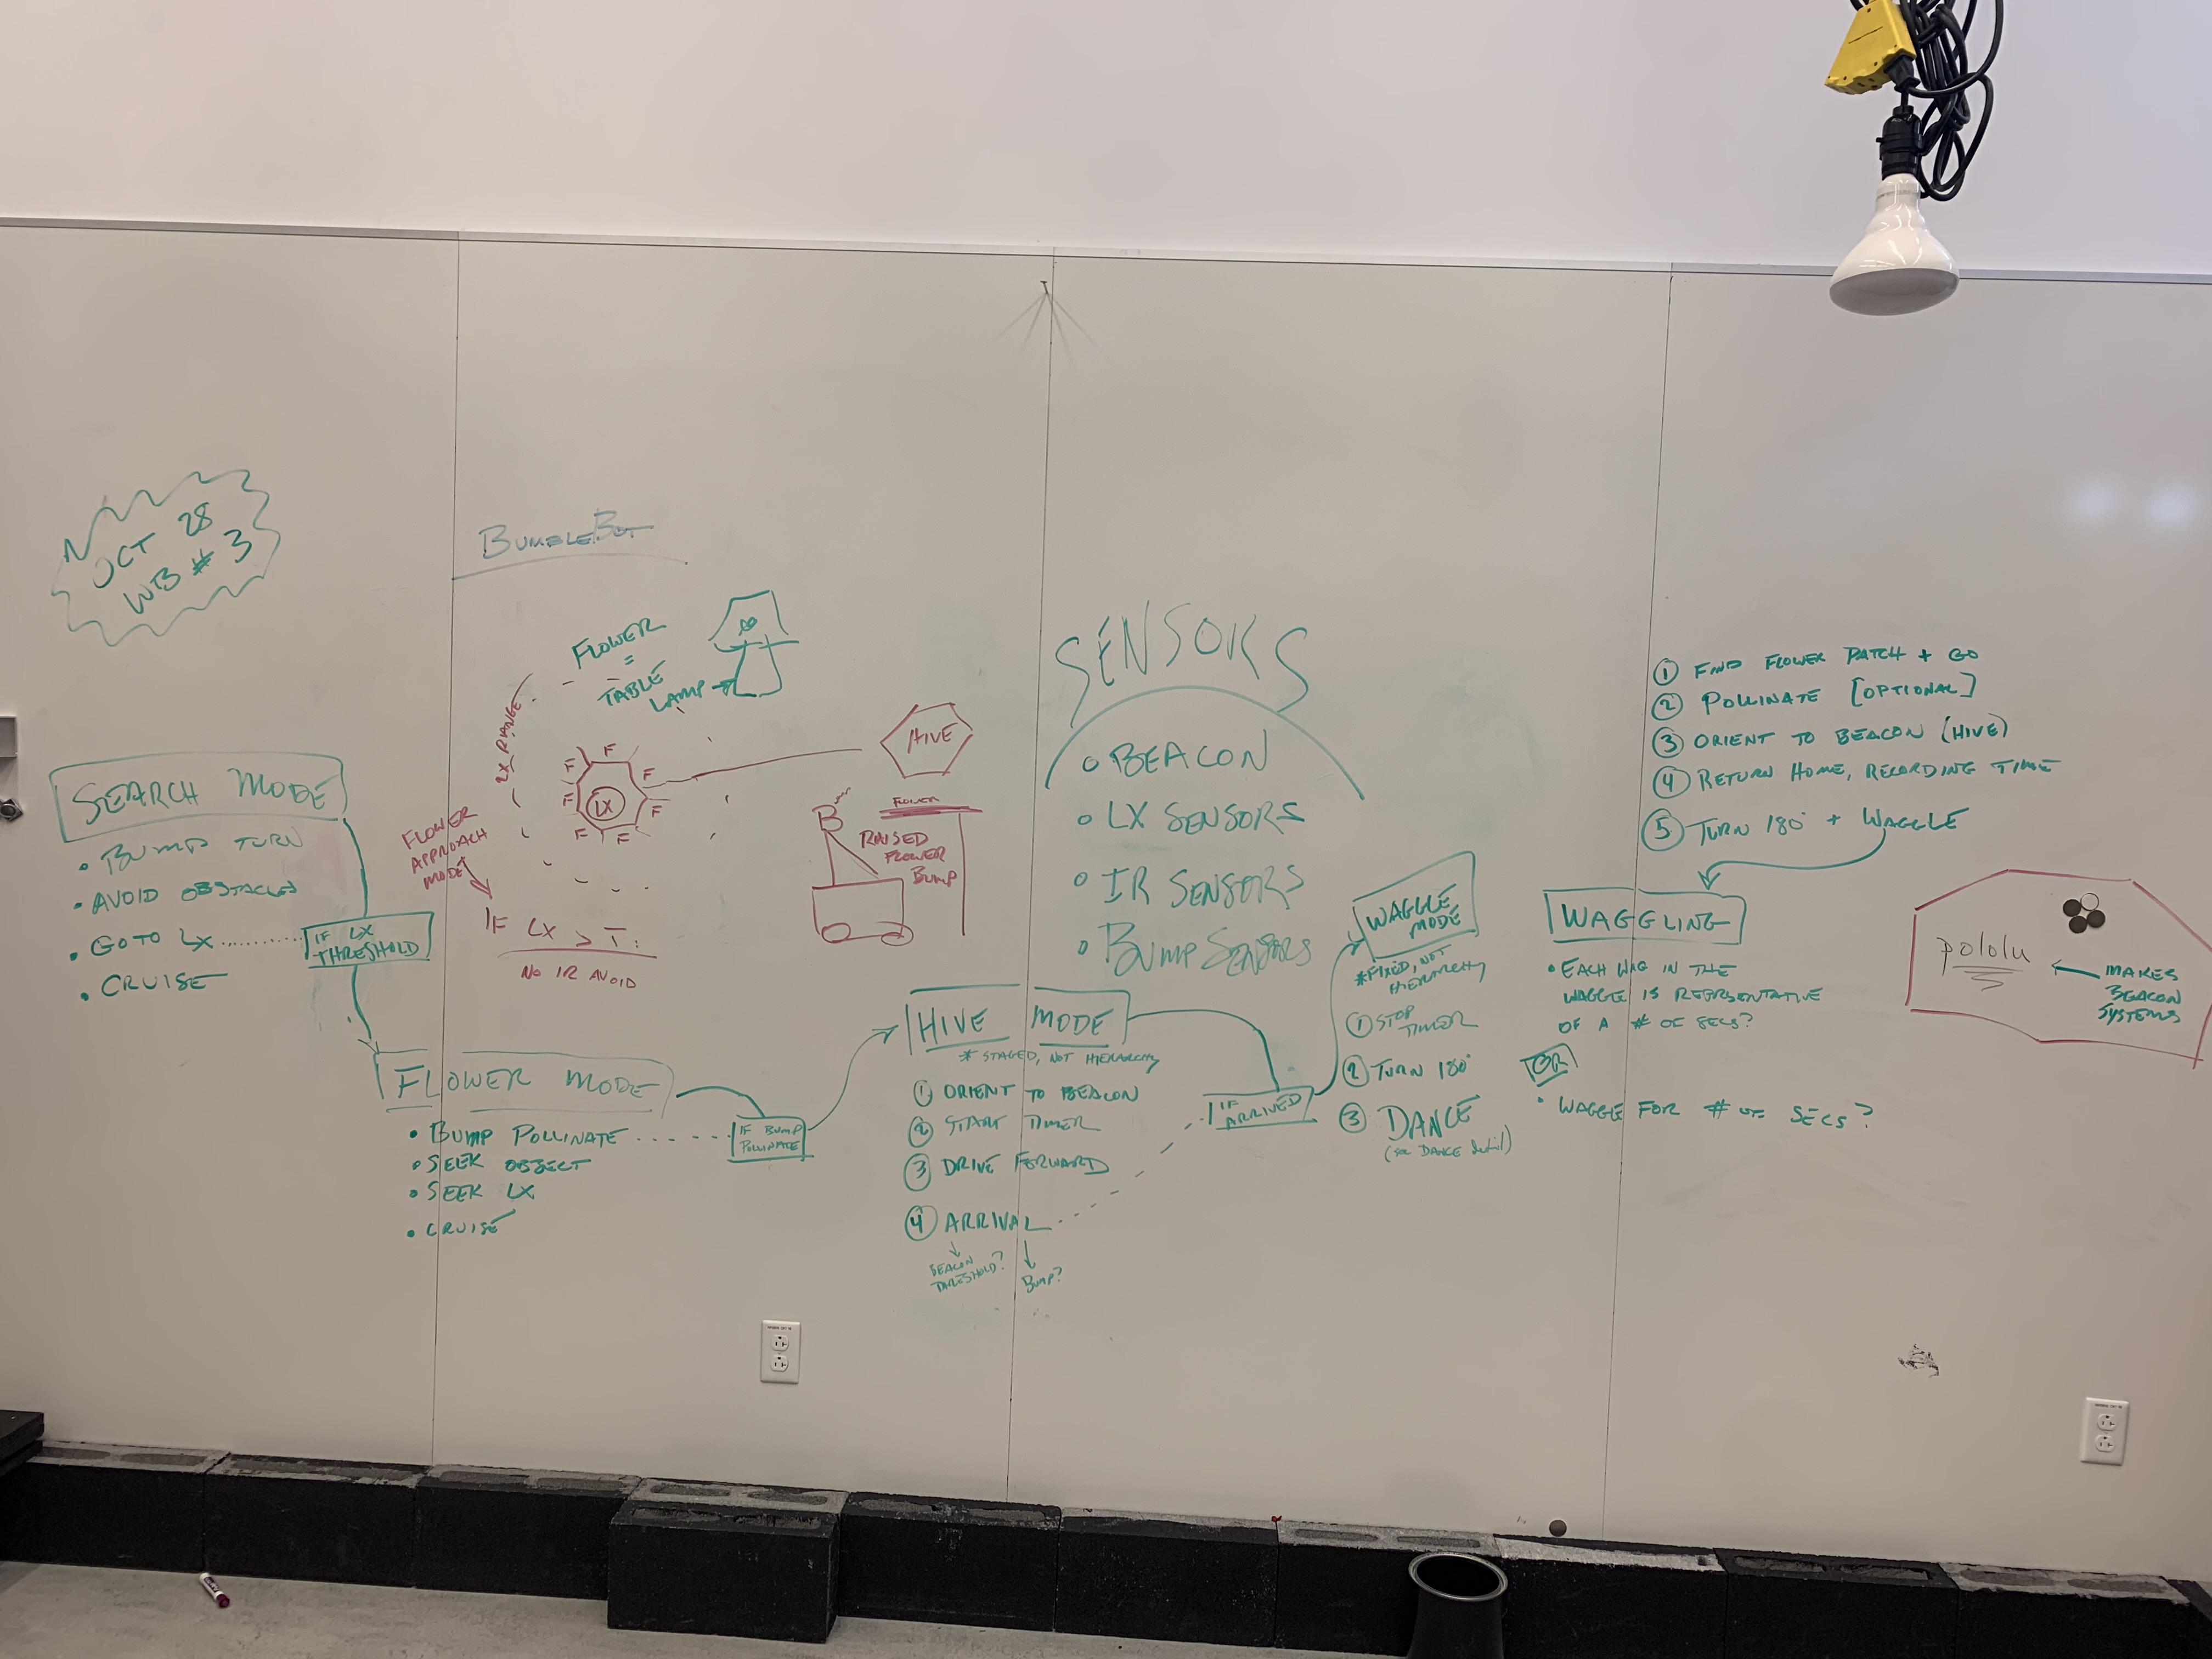 OCT 28
WB # 3
BUMBLEBOT
FLOWER
=
TABLE
LAMP
2X RANGE
F
F
F
F
F
F
F
F
LX
HIVE
FLOWER
APPROACH
MODE
IF LX > T:
NO IR AVOID
B
FLOWER
RAISED
FLOWER
BUMP
SEARCH MODE
• BUMP TURN
• AVOID OBSTACLES
• GO TO LX
• CRUISE
IF LX
THRESHOLD
FLOWER MODE
• BUMP POLLINATE
• SEEK OBJECT
• SEEK LX
• CRUISE
IF BUMP
POLLINATE
SENSORS
• BEACON
• LX SENSORS
• IR SENSORS
• BUMP SENSORS
HIVE MODE
* STAGED, NOT HIERARCHY
① ORIENT TO BEACON
② START TIMER
③ DRIVE FORWARD
④ ARRIVAL
BEACON
THRESHOLD?
BUMP?
IF
ARRIVED
WAGGLE
MODE
* FIXED, NOT
HIERARCHY
① STOP
TIMER
② TURN 180°
③ DANCE
(see DANCE detail)
① FIND FLOWER PATCH + GO
② POLLINATE [OPTIONAL]
③ ORIENT TO BEACON (HIVE)
④ RETURN HOME, RECORDING TIME
⑤ TURN 180° + WAGGLE
WAGGLING
• EACH WAG IN THE
WAGGLE IS REPRSENTATIVE
OF A # OF SECS?
OR
• WAGGLE FOR # OF SECS?
pololu
MAKES
BEACON
SYSTEMS